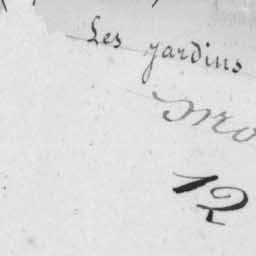 Les jardins
12